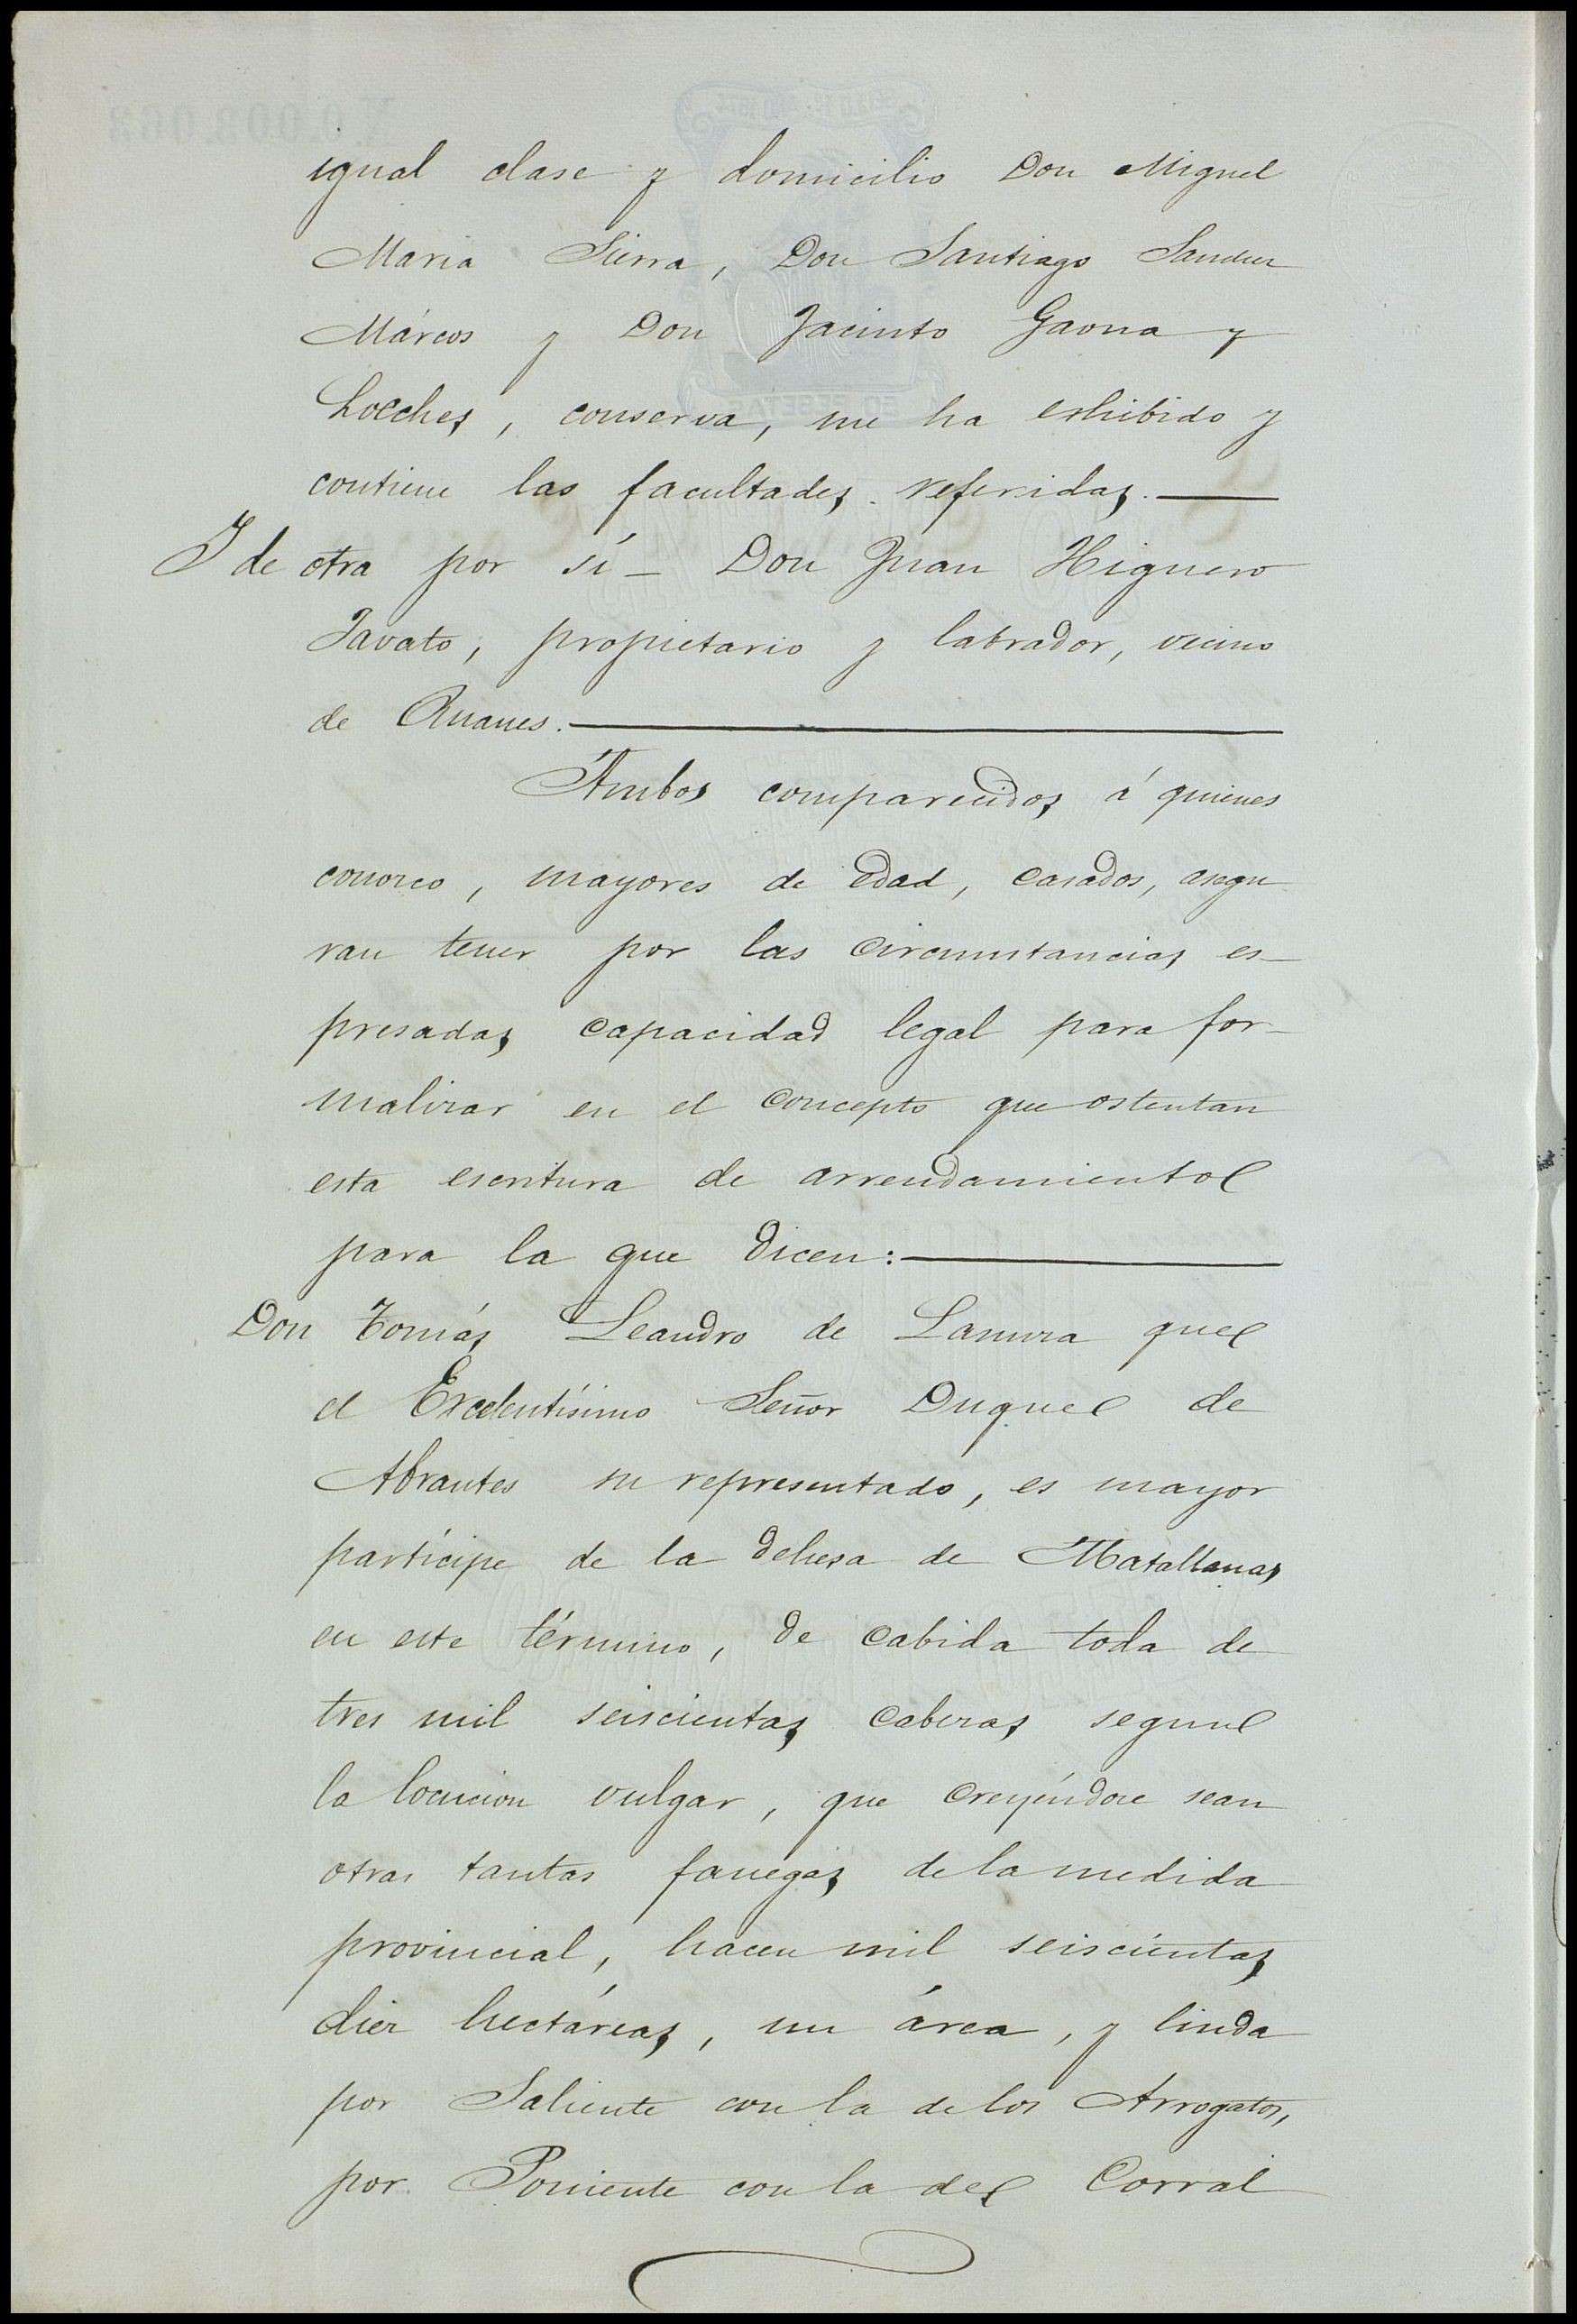 igual clase y domicilio Don Miguel
Maria Sierra, Don Santiago Sanchez
Márcos y Don Jacinto Gaona y
Loeches, conserva, me ha eshibido y
contiene las facultades referidas.
Y de otra por sí - Don Juan Higuero
Javato, propietario y labrador, vecino
de
Ambos comparecidos á quienes
conozco, mayores de edad, casados, asegu
ran tener por las circunstancias es-
presadas capacidad legal para for-
malizar en el concepto que ostentan
esta escritura de arrendamiento
para la que dicen:
Don Tomás Leandro de que
el Excelentísimo Señor Duque de
Abrantes su representado, es mayor
partícipe de la dehesa de Matallanas
en este término, de cabida toda de
tres mil seiscientas cabezas segun
la locucion vulgar, que creyéndose sean
otras tantas fanegas de la medida
provincial, hacen mil seiscientas
diez hectáreas, un área, y linda
por Saliente con la de los Arrogatos,
por Poniente con la del Corral